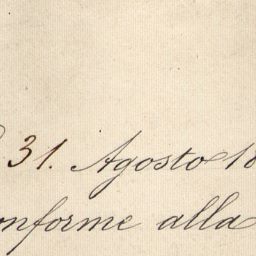 31. Agosto 18
onforme alla